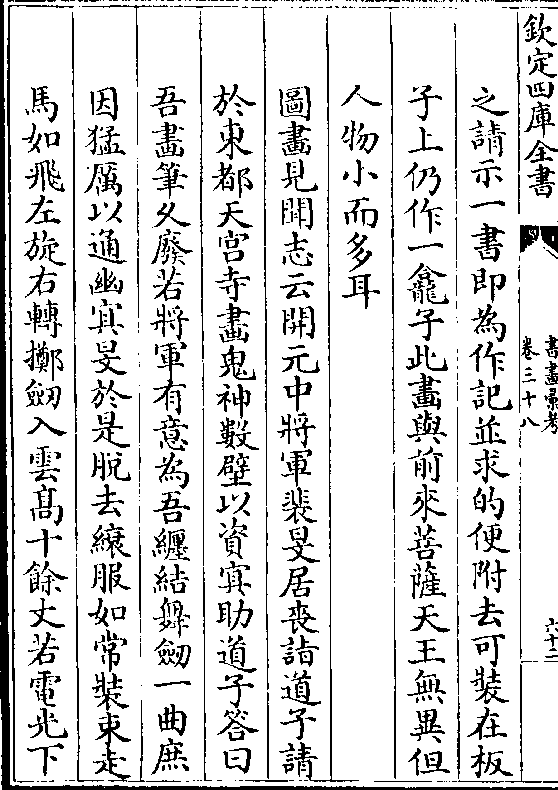 欽定四庫全書
書畫彚考
卷三十八
六十二
之請示一書即為作記並求的便附去可裝在板
子上仍作一龕子此畫與前來菩薩天王無異但
人物小而多耳
圖畫見聞志云開元中將軍裴旻居喪詣道子請
於東都天宫寺畫鬼神數壁以資冥助道子答曰
吾畫筆久廢若將軍有意為吾纒結舞劒一曲庶
因猛厲以通幽冥旻於是脱去縗服如常裝束走
馬如飛左旋右轉擲劒入雲髙十餘丈若電光下